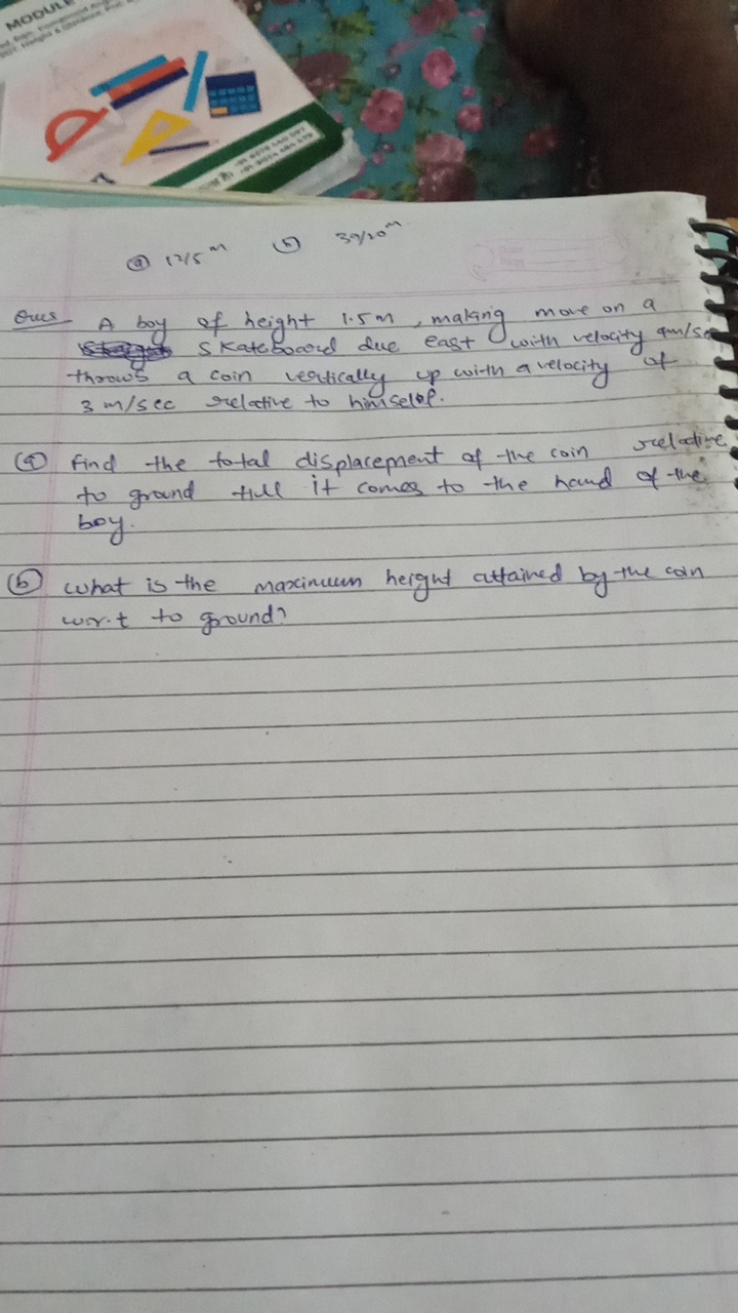 MODULE
ⓐ 12/5 m ⓑ 39/20 m
Ques A boy of height 1.5 m, making move on a
skateboard due east with velocity 4m/sec
throws a coin vertically up with a velocity of
3 m/sec relative to himself.
(a) find the total displacement of the coin relative
to ground till it comes to the hand of the
boy.
(b) what is the maximum height attained by the coin
w.r.t to ground?